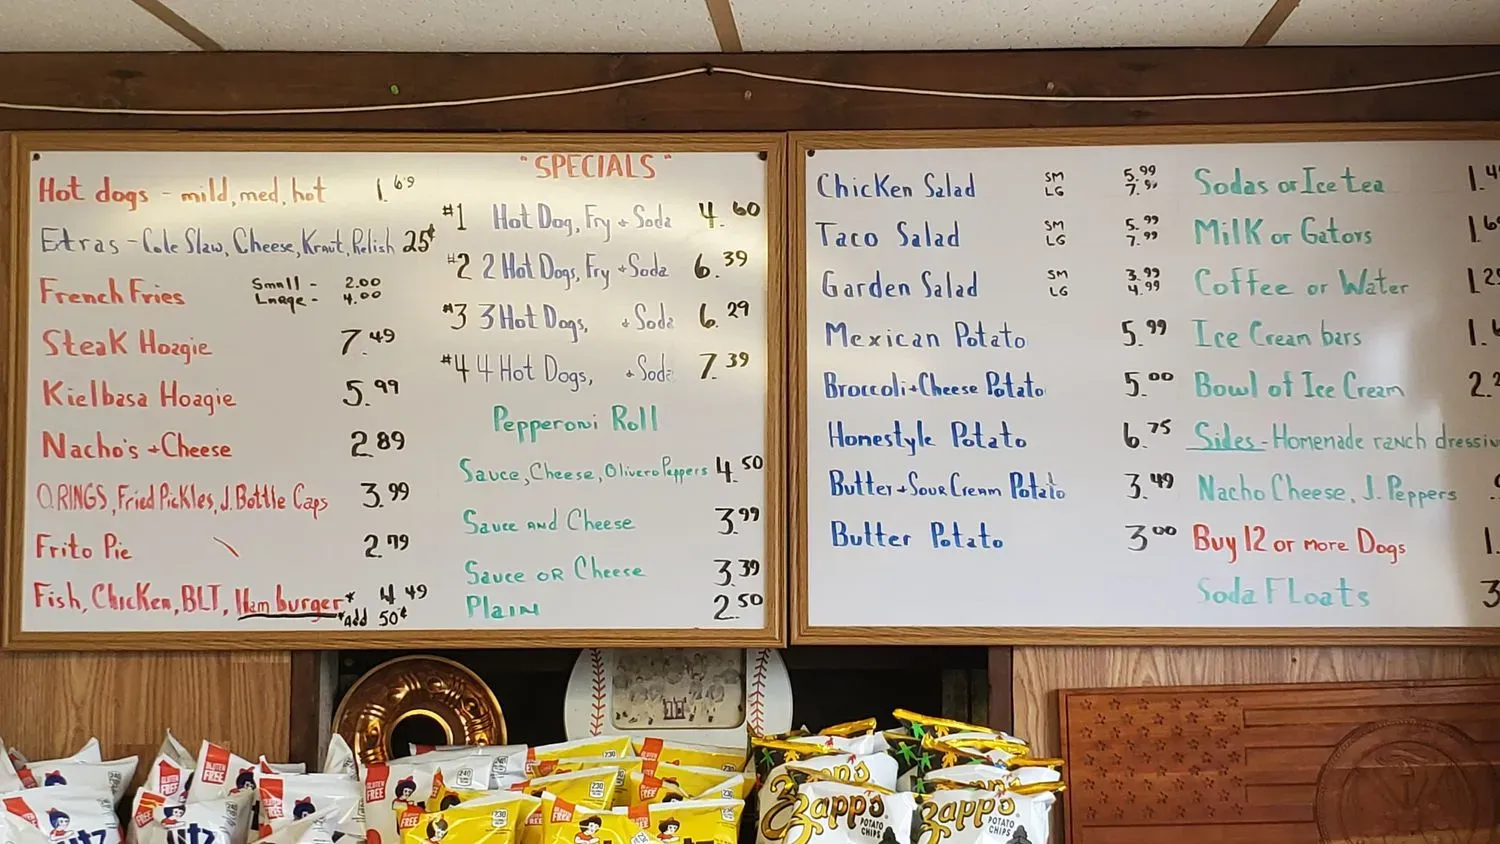 Hot dogs - mild, med, hot 1.69
Extras - Cole Slaw, Cheese, Kraut, Relish 25¢
French Fries Small - 2.00
Large - 4.00
Steak Hoagie 7.49
Kielbasa Hoagie 5.99
Nacho's + Cheese 2.89
O.RINGS, Fried Pickles, J. Bottle Caps 3.99
Frito Pie 2.79
Fish, Chicken, BLT, Hamburger* 4.49
*add 50¢
"SPECIALS"
#1 Hot Dog, Fry + Soda 4.60
#2 2 Hot Dogs, Fry + Soda 6.39
#3 3 Hot Dogs, + Soda 6.29
#4 4 Hot Dogs, + Soda 7.39
Pepperoni Roll
Sauce, Cheese, Oliver Peppers 4.50
Sauce AND Cheese 3.99
Sauce OR Cheese 3.39
Plain 2.50
Chicken Salad SM 5.99
LG 7.99
Taco Salad SM 5.99
LG 7.99
Garden Salad SM 3.99
LG 4.99
Mexican Potato 5.99
Broccoli + Cheese Potato 5.00
Homestyle Potato 6.75
Butter + Sour Cream Potato 3.49
Butter Potato 3.00
Sodas or Ice tea 1.4
Milk or Gators 1.6
Coffee or Water 1.25
Ice Cream bars 1.
Bowl of Ice Cream 2.
Sides - Homemade ranch dressin
Nacho Cheese, J. Peppers
Buy 12 or more Dogs 1.
Soda Floats 3
GLUTEN FREE
utz
Zapp's
POTATO CHIPS
Zapp's
POTATO CHIPS